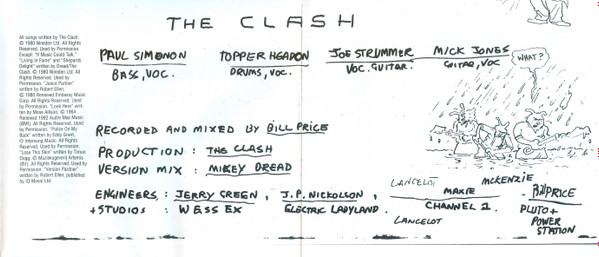 THE CLASH
All songs written by The Clash.
© 1980 Nineden Ltd. All Rights
Reserved. Used by Permission.
Except: "If Music Could Talk,"
"Living In Fame" and "Shepards
Delight" written by Dread/The
Clash. © 1980 Nineden Ltd. All
Rights Reserved. Used by
Permission. "Junco Partner"
written by Robert Ellen.
© 1980 Renewed Embassy Music
Corp. All Rights Reserved. Used
by Permission. "Look Here" writ-
ten by Mose Allison. © 1964
Renewed 1992 Audre Mae Music
(BMI). All Rights Reserved. Used
by Permission. "Police On My
Back" written by Eddy Grant.
© Intersong Music. All Rights
Reserved. Used by Permission.
"Lose This Skin" written by Timon
Dogg. © Muziekuitgeverij Artemis
(BV). All Rights Reserved. Used by
Permission. "Version Pardner"
written by Robert Ellen, published
by © Music Ltd
PAUL SIMONON TOPPER HEADON JOE STRUMMER MICK JONES
BASS, VOC. DRUMS, VOC. VOC. GUITAR. GUITAR, VOC
WHAT?
RECORDED AND MIXED BY BILL PRICE
PRODUCTION : THE CLASH
VERSION MIX : MIKEY DREAD
LANCELOT MCKENZIE
ENGINEERS : JERRY GREEN, J.P. NICKOLSON, MAXIE BILL PRICE
+ STUDIOS : WESSEX ELECTRIC LADYLAND. CHANNEL 1. PLUTO +
LANCELOT POWER
STATION